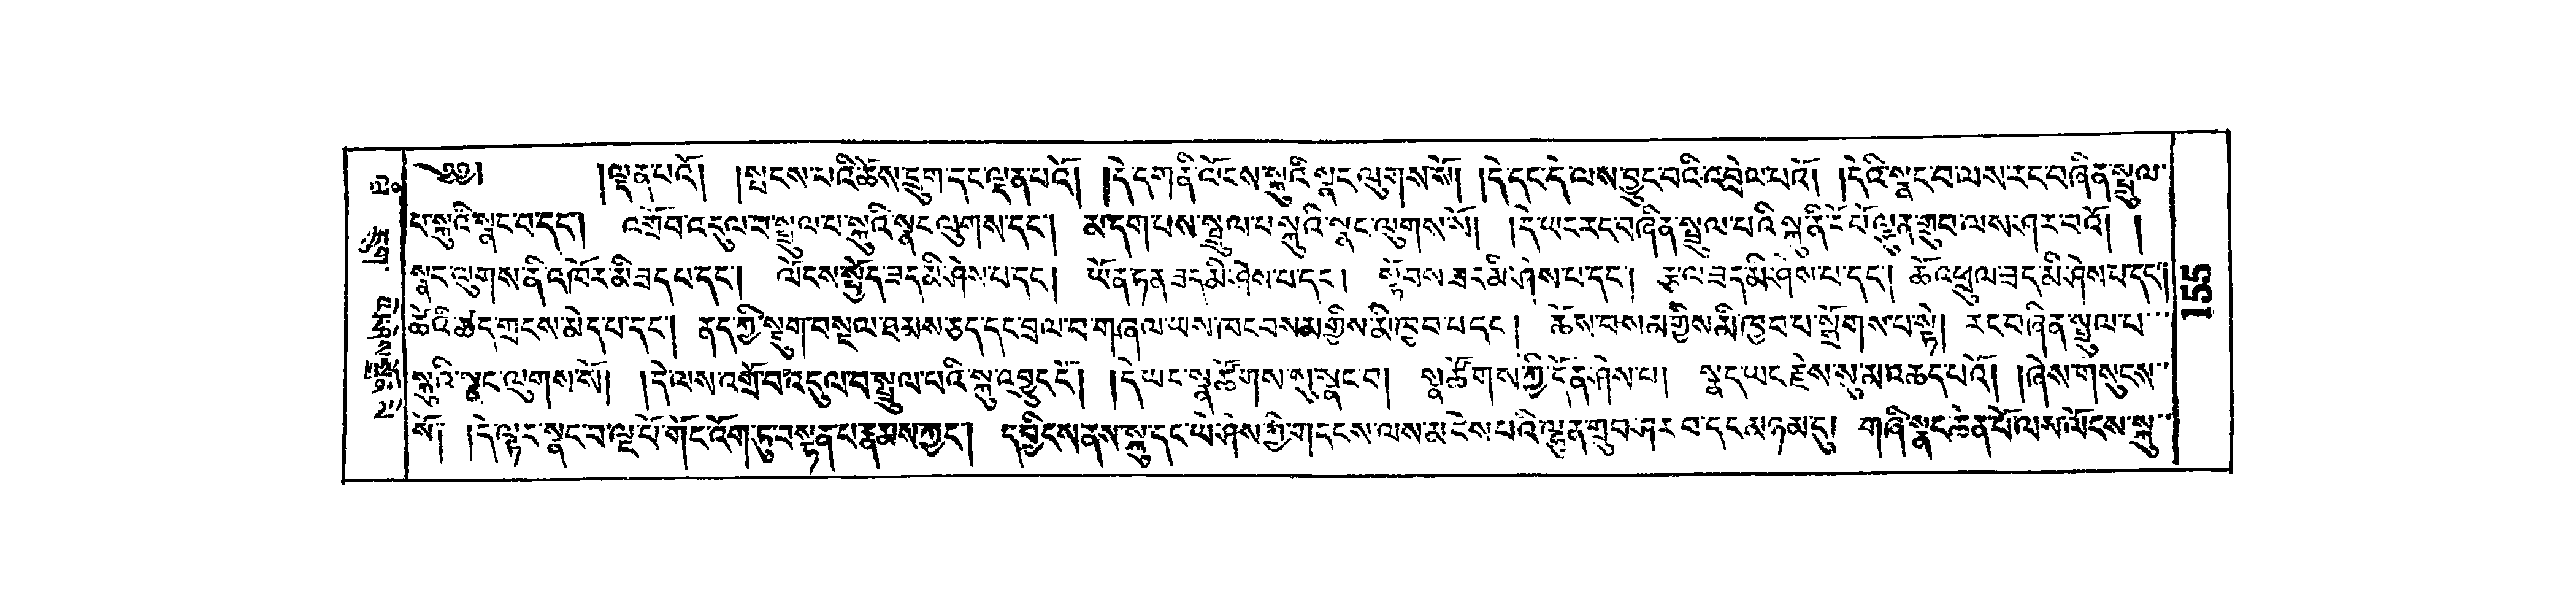 ༄༅། །ལྡན་པའོ། །སྤངས་པའི་ཆོས་དྲུག་དང་ལྡན་པའོ། །དེ་དག་ནི་ལོངས་སྐུའི་སྣང་ལུགས་སོ། །དེ་དང་དེ་ལས་བྱུང་བའི་འབྲེལ་པའོ། །དེའི་སྣང་བ་ལས་རང་བཞིན་སྤྲུལ་
པ་སྐུའི་སྣང་བ་དང་། འགྲོ་བ་འདུལ་བ་སྤྲུལ་པ་སྐུའི་སྣང་ལུགས་དང་། མ་དག་པས་སྤྲུལ་པ་སྐུའི་སྣང་ལུགས་སོ། །དེ་ཡང་རང་བཞིན་སྤྲུལ་པའི་སྐུ་ནི་ངོ་བོ་ལྷུན་གྲུབ་ལས་ཤར་བའོ། །
སྣང་ལུགས་ནི་འཁོར་མི་ཟད་པ་དང་། ལོངས་སྤྱོད་ཟད་མི་ཤེས་པ་དང་། ཡོན་ཏན་ཟད་མི་ཤེས་པ་དང་། སྟོབས་ཟད་མི་ཤེས་པ་དང་། རྩལ་ཟད་མི་ཤེས་པ་དང་། ཆོ་འཕྲུལ་ཟད་མི་ཤེས་པ་དང་།
ཚེའི་ཚད་གྲངས་མེད་པ་དང་། ནད་ཀྱི་སྡུག་བསྔལ་ཐམས་ཅད་དང་བྲལ་བ་གཞལ་ཡས་ཁང་བསམ་གྱིས་མི་ཁྱབ་པ་དང་། ཆོས་བསམ་གྱིས་མི་ཁྱབ་པ་སྒྲོགས་པ་སྟེ། རང་བཞིན་སྤྲུལ་པ་
སྐུའི་སྣང་ལུགས་སོ། །དེ་ལས་འགྲོ་བ་འདུལ་བ་སྤྲུལ་པའི་སྐུ་འབྱུང་ངོ་། །དེ་ཡང་སྣ་ཚོགས་སུ་སྣང་བ། སྣ་ཚོགས་ཀྱི་དོན་ཤེས་པ། སྣང་ཡང་རྗེས་སུ་མ་འཆད་པའོ། །ཞེས་གསུངས་
སོ། །དེ་ལྟར་སྣང་བ་ལྔ་པོ་གོང་འོག་ཏུ་བསྟན་པ་རྣམས་ཀྱང་། དབྱིངས་ནས་སྐུ་དང་ཡེ་ཤེས་ཀྱི་གདངས་ལས་མ་ངེས་པའི་ལྷུན་གྲུབ་ཤར་བ་དང་མཉམ་དུ། གཞི་སྣང་ཆེན་པོ་ལས་ལོངས་སྐུ་